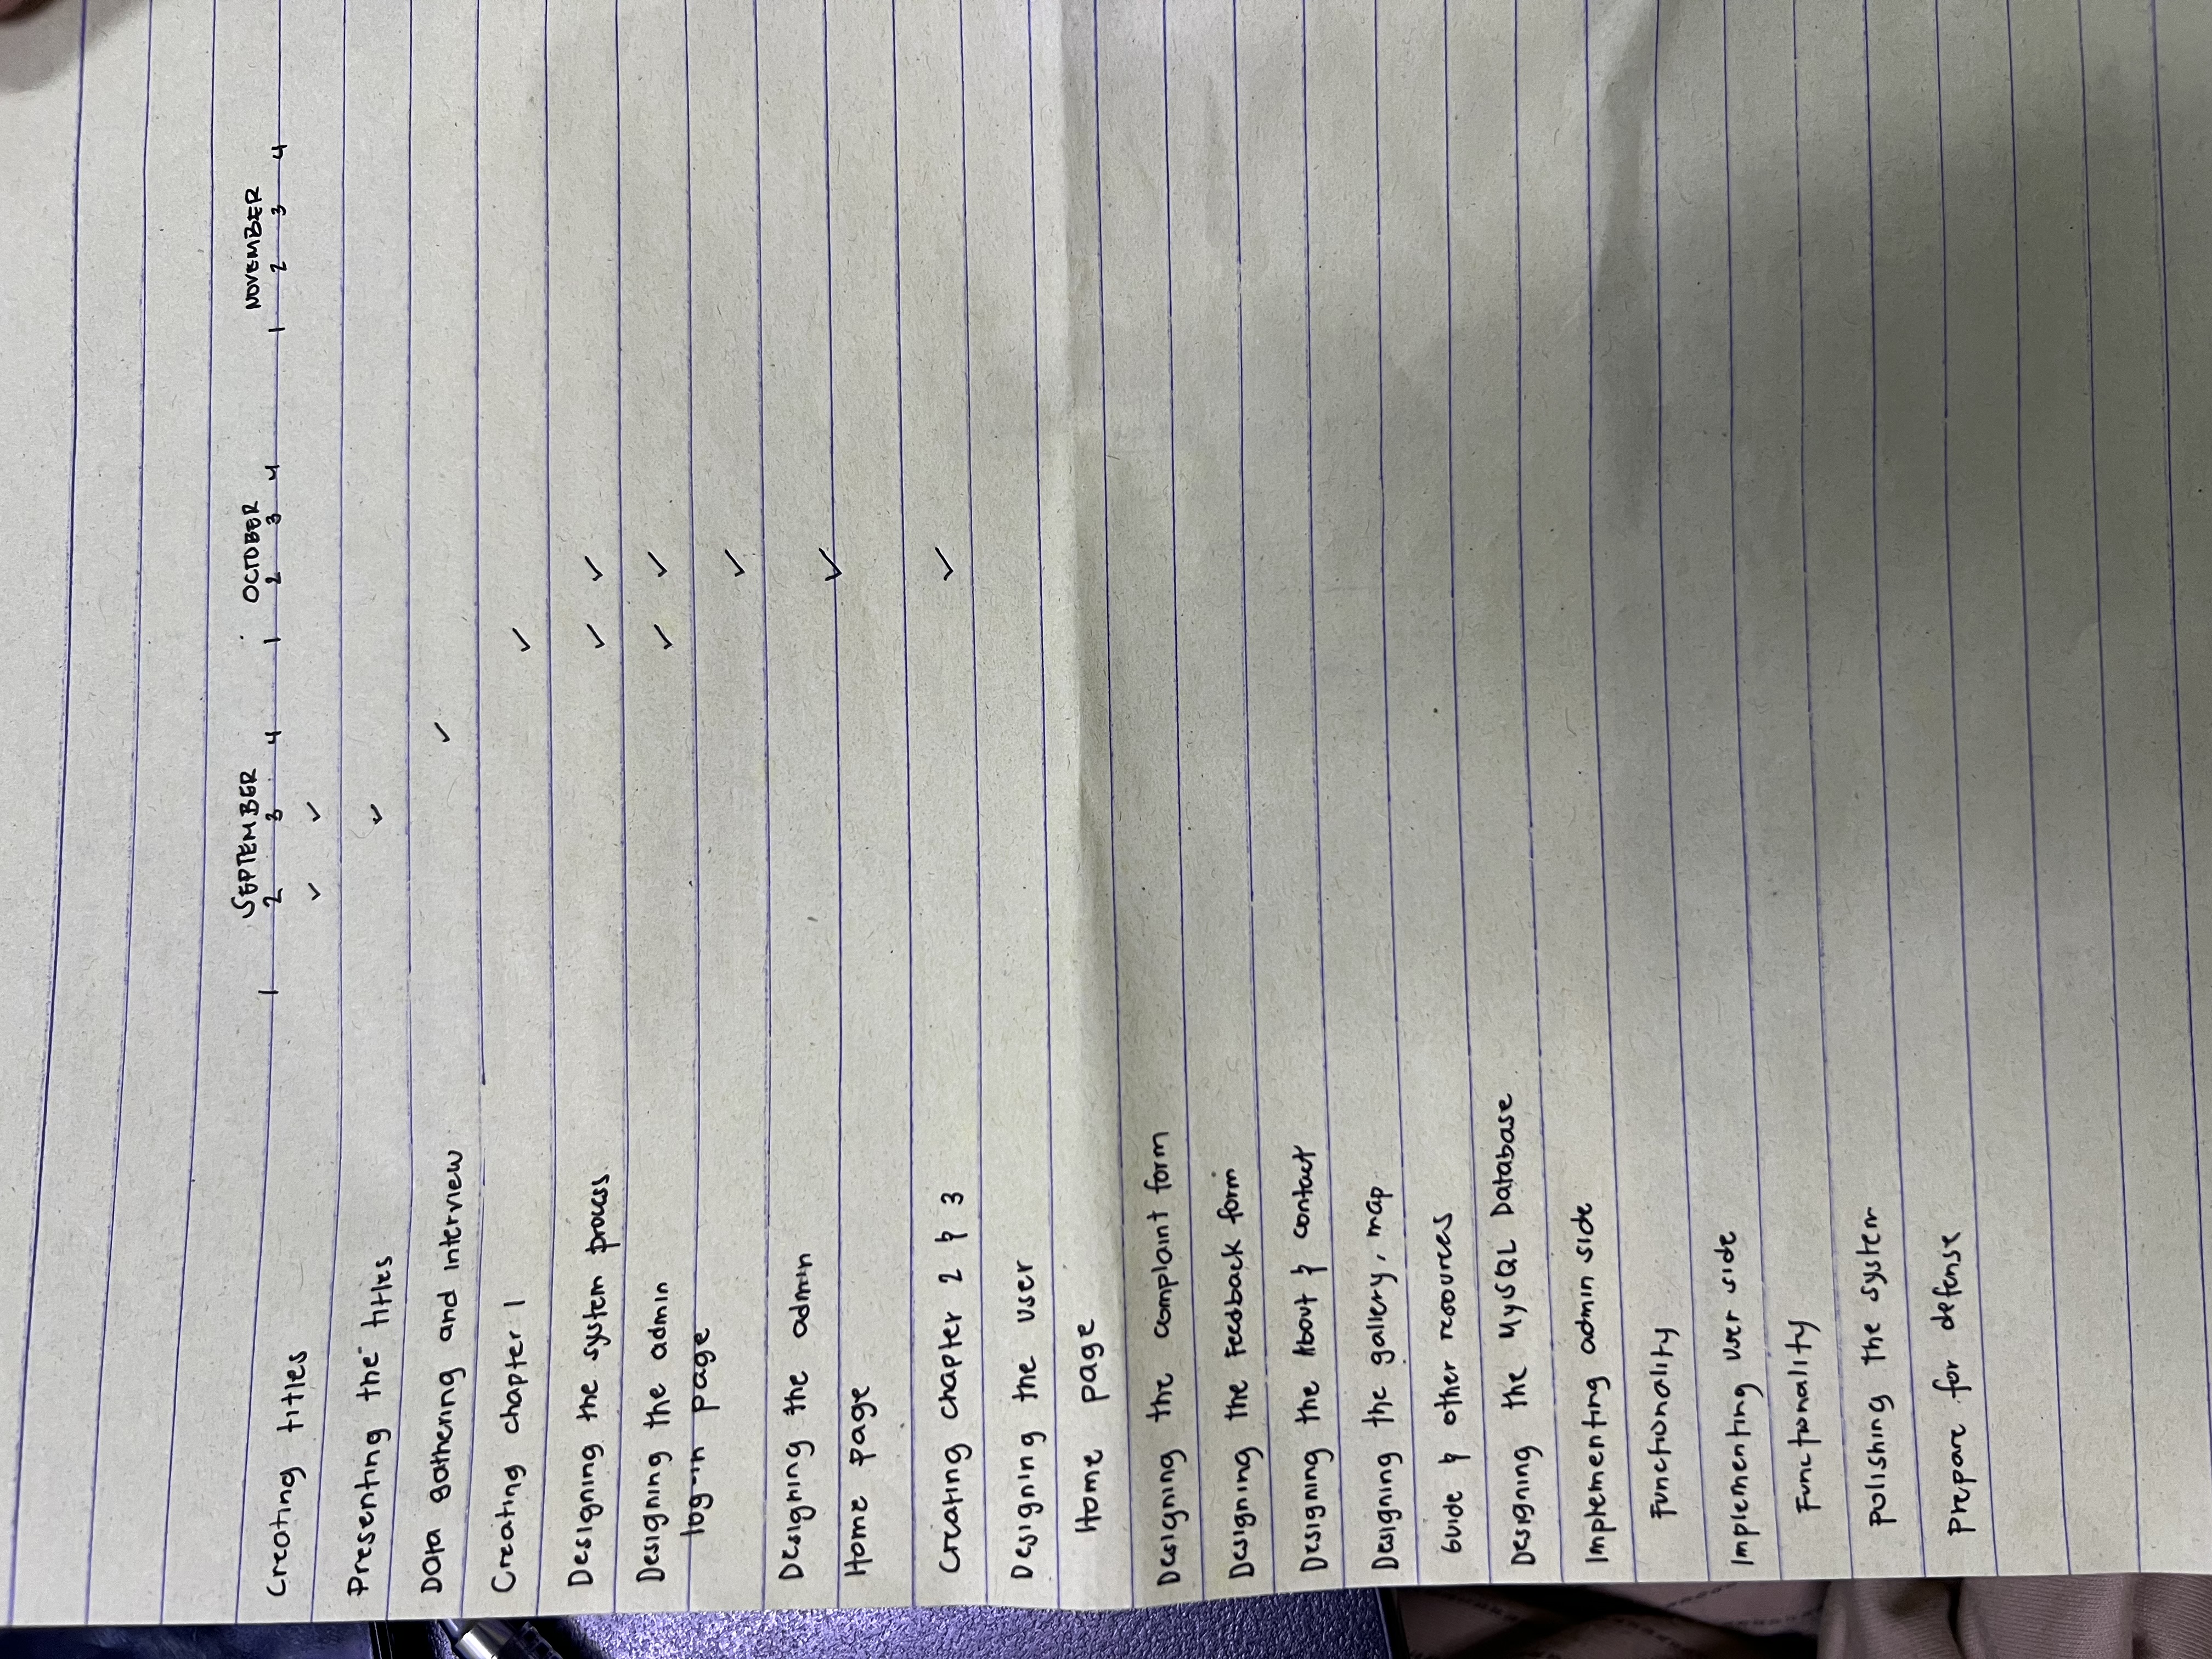 SEPTEMBER OCTOBER NOVEMBER
1 2 3 4 1 2 3 4 1 2 3 4
Creating titles ✓ ✓
Presenting the titles ✓
Data gathering and interview ✓
Creating chapter 1 ✓
Designing the system process ✓ ✓
Designing the admin ✓ ✓
log-in page
✓
Designing the admin
✓
Home page
Creating chapter 2 & 3 ✓
Designing the user
Home page
Designing the complaint form
Designing the Feedback form
Designing the About & contact
Designing the gallery, map
Guide & other resources
Designing the MySQL Database
Implementing admin side
Functionality
Implementing user side
Functionality
polishing the system
prepare for defense